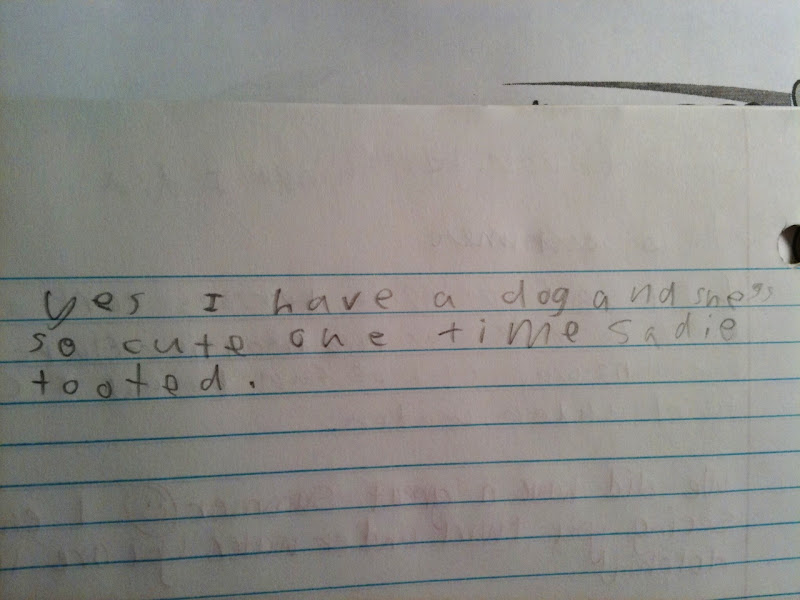 yes I have a dog and she's
so cute one time sadie
tooted.